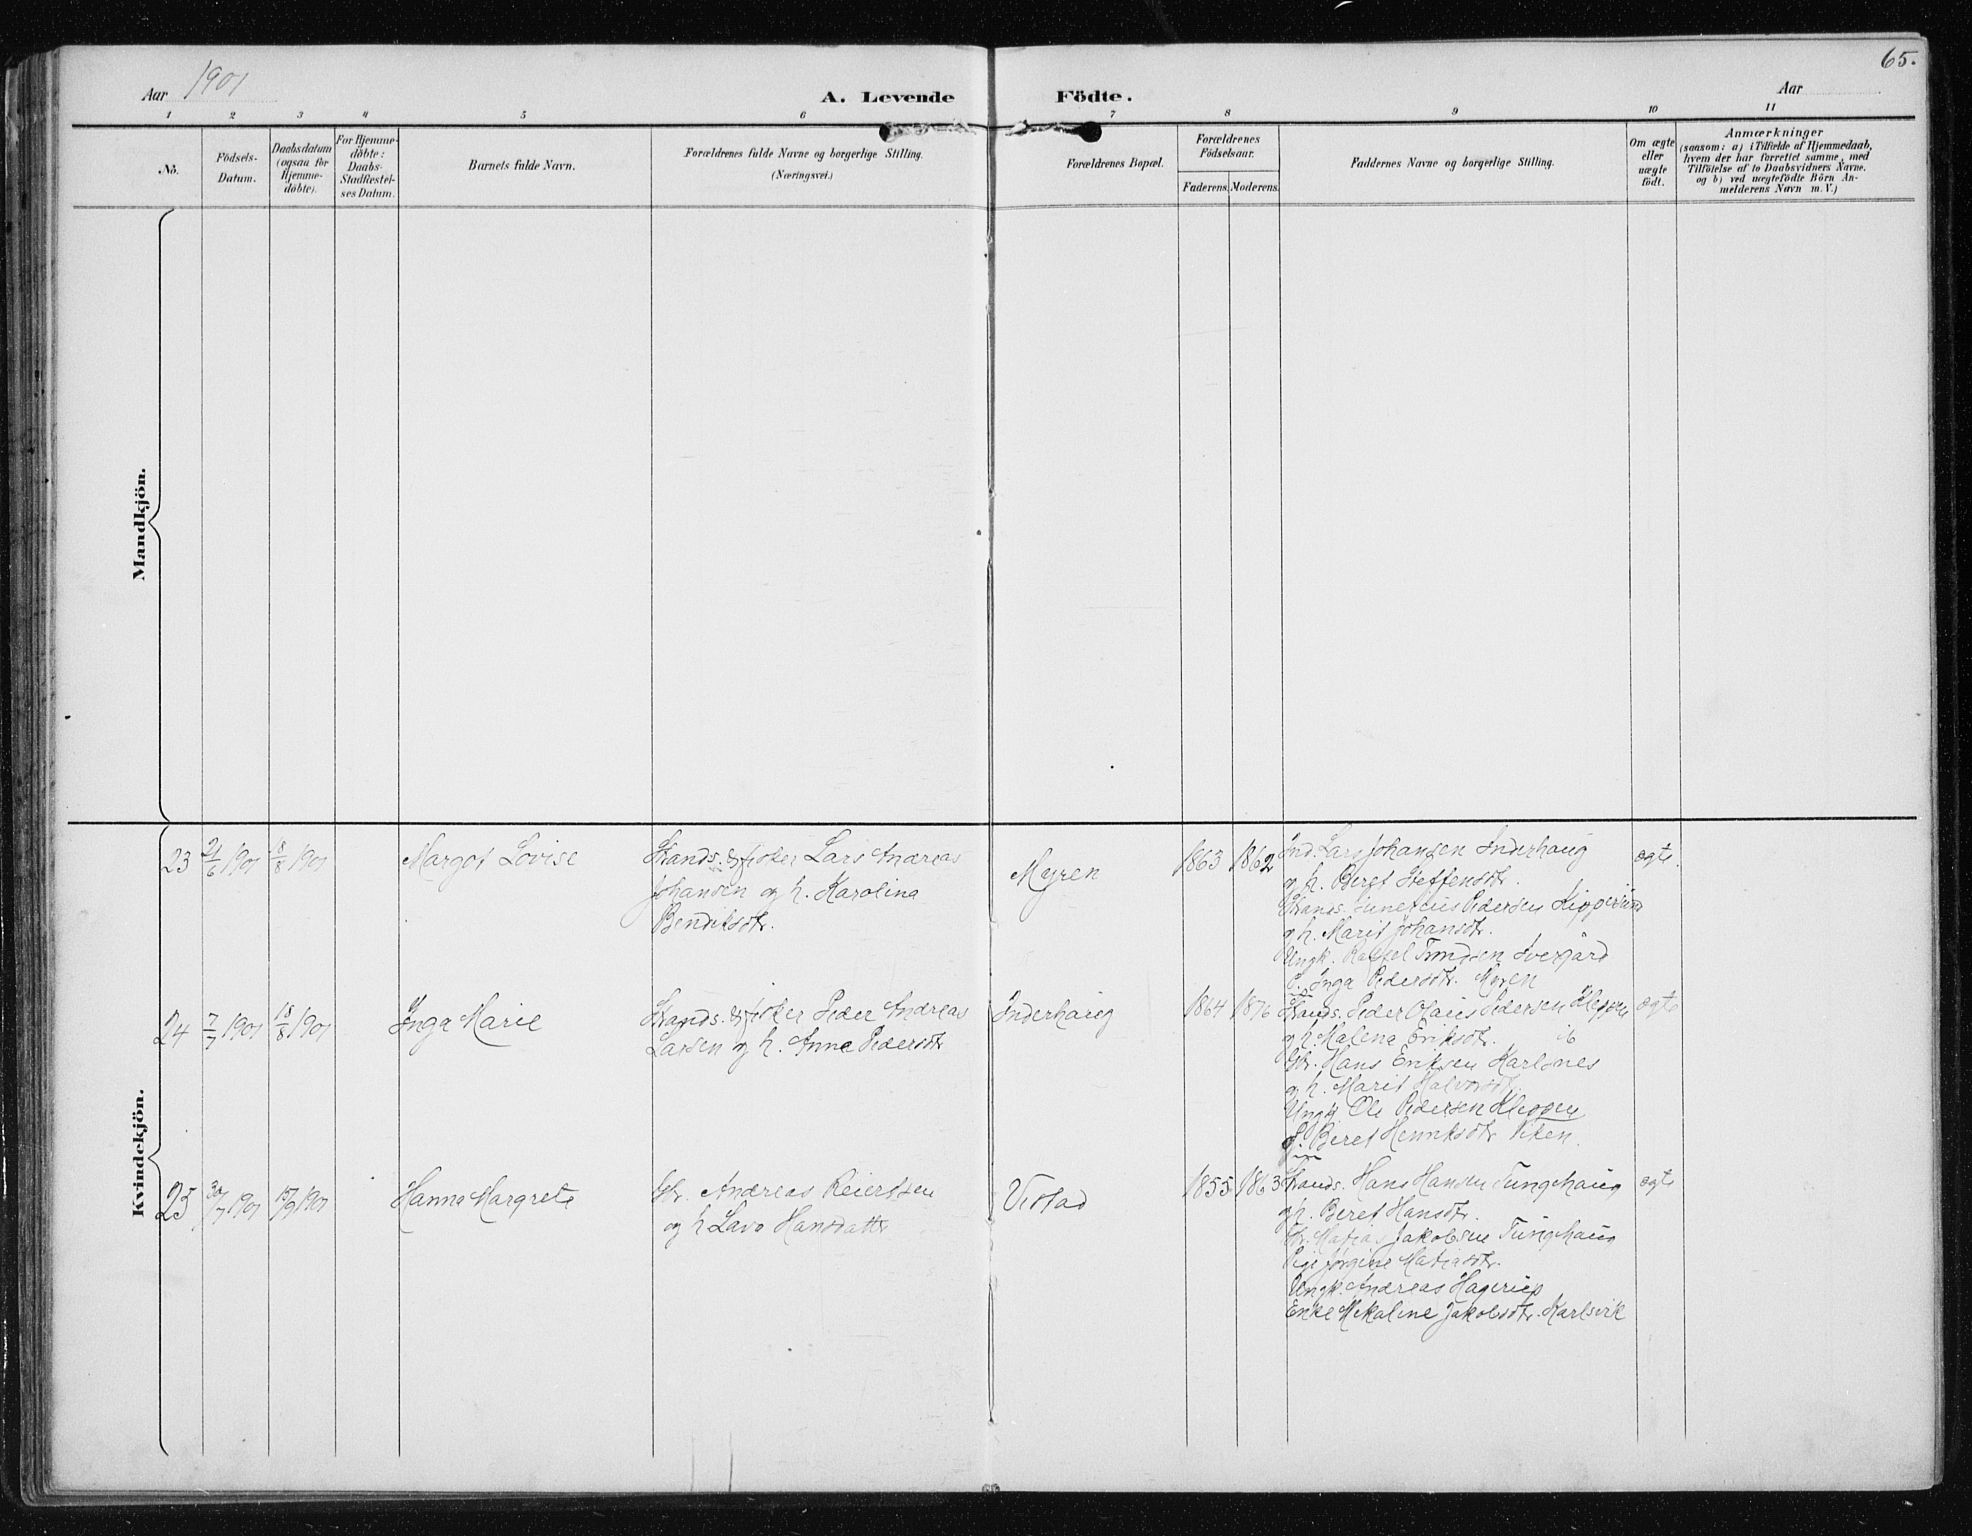 65.
Aar 1901
A. Levende Födte.
Aar
1 2 3 4 5 6 7 8 9 10 11
No.
Födsels-
Datum.
Daabsdatum
(ogsaa for
Hjemme-
döbte).
For Hjemme-
döbte:
Daabs-
Stadfæstel-
ses Datum.
Barnets fulde Navn.
Forældrenes fulde Navne og borgerlige Stilling.
(Næringsvei.)
Forældrenes Bopæl.
Forældrenes
Födselsaar.
Faderens. Moderens.
Faddernes Navne og borgerlige Stilling.
Om ægte
eller
uægte
födt.
Anmærkninger
(saasom: a) i Tilfælde af Hjemmedaab,
hvem der har forrettet samme, med
Tilföielse af to Daabsvidners Navne.
og b) ved uægtefödte Börn An-
melderens Navn m. V.)
Mandkjön.
Kvindekjön.
23 21/6 1901 18/8 1901 Margot Lovise
Strands. & fisker Lars Andreas
Johansen og h. Karolina
Bendiksdtr.
Myren 1863 1862
Ind. Lars Johansen Inderhaug
og h. Beret Steffensdtr.
Strands. Pedersen
og h. Marit Johansdtr.
Ungk.
P. Inga Pedersdtr. Myren
ægte.
24 7/7 1901 18/8 1901 Inga Marie
Strands. & fisker Peder Andreas
Larsen og h. Anne Pedersdtr
Inderhaug 1864 1876
Strands. Peder Olaus Pedersen Kleppen
og h. Malena Eriksdtr. ib
Gbr. Hans Eriksen Karlsnes
og h. Marit Halvorsdtr.
Ungk Ole Pedersen Kleppen
P. Beret Henriksdtr. Viken.
ægte
25 30/7 1901 15/9 1901 Hanna Margrete
Gbr. Andreas Reiertsen
og h Lava Hansdatter
Vistad 1855 1863
Strands. Hans Hansen Tunghaug
og h. Beret Hansdtr.
Gbr. Matias Jakobsen Tunghaug
Pige Jørgine Matiasdtr.
Ungk. Andreas Hagerup
Enke Mekaline Jakobsdtr. Karlsvik
ægte